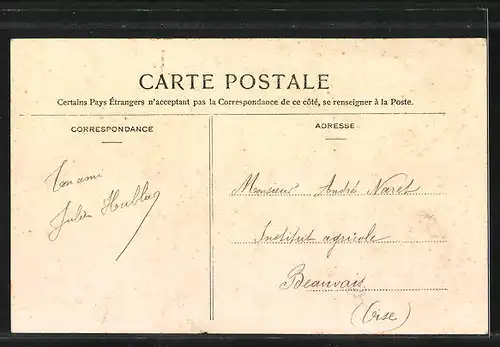 CARTE POSTALE
Certains Pays Étrangers n'acceptant pas la Correspondance de ce côté, se renseigner à la Poste.
CORRESPONDANCE
Ton ami
Julien
ADRESSE
Monsieur André Naret
Institut agricole
Beauvais
(Oise)